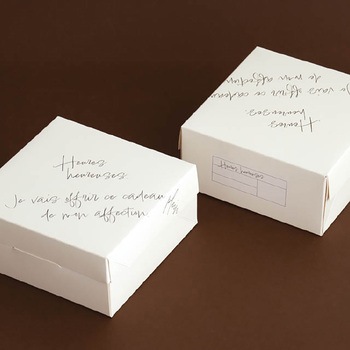 Heures
heureuses
Je vais offrir ce cadeau
de mon affection
Heures
heureuses
Je vais offrir ce cadeau
de mon affection